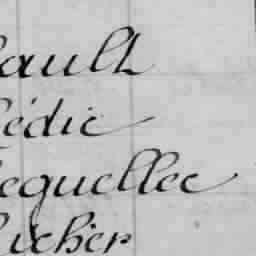 ault
édic
equellec
icher